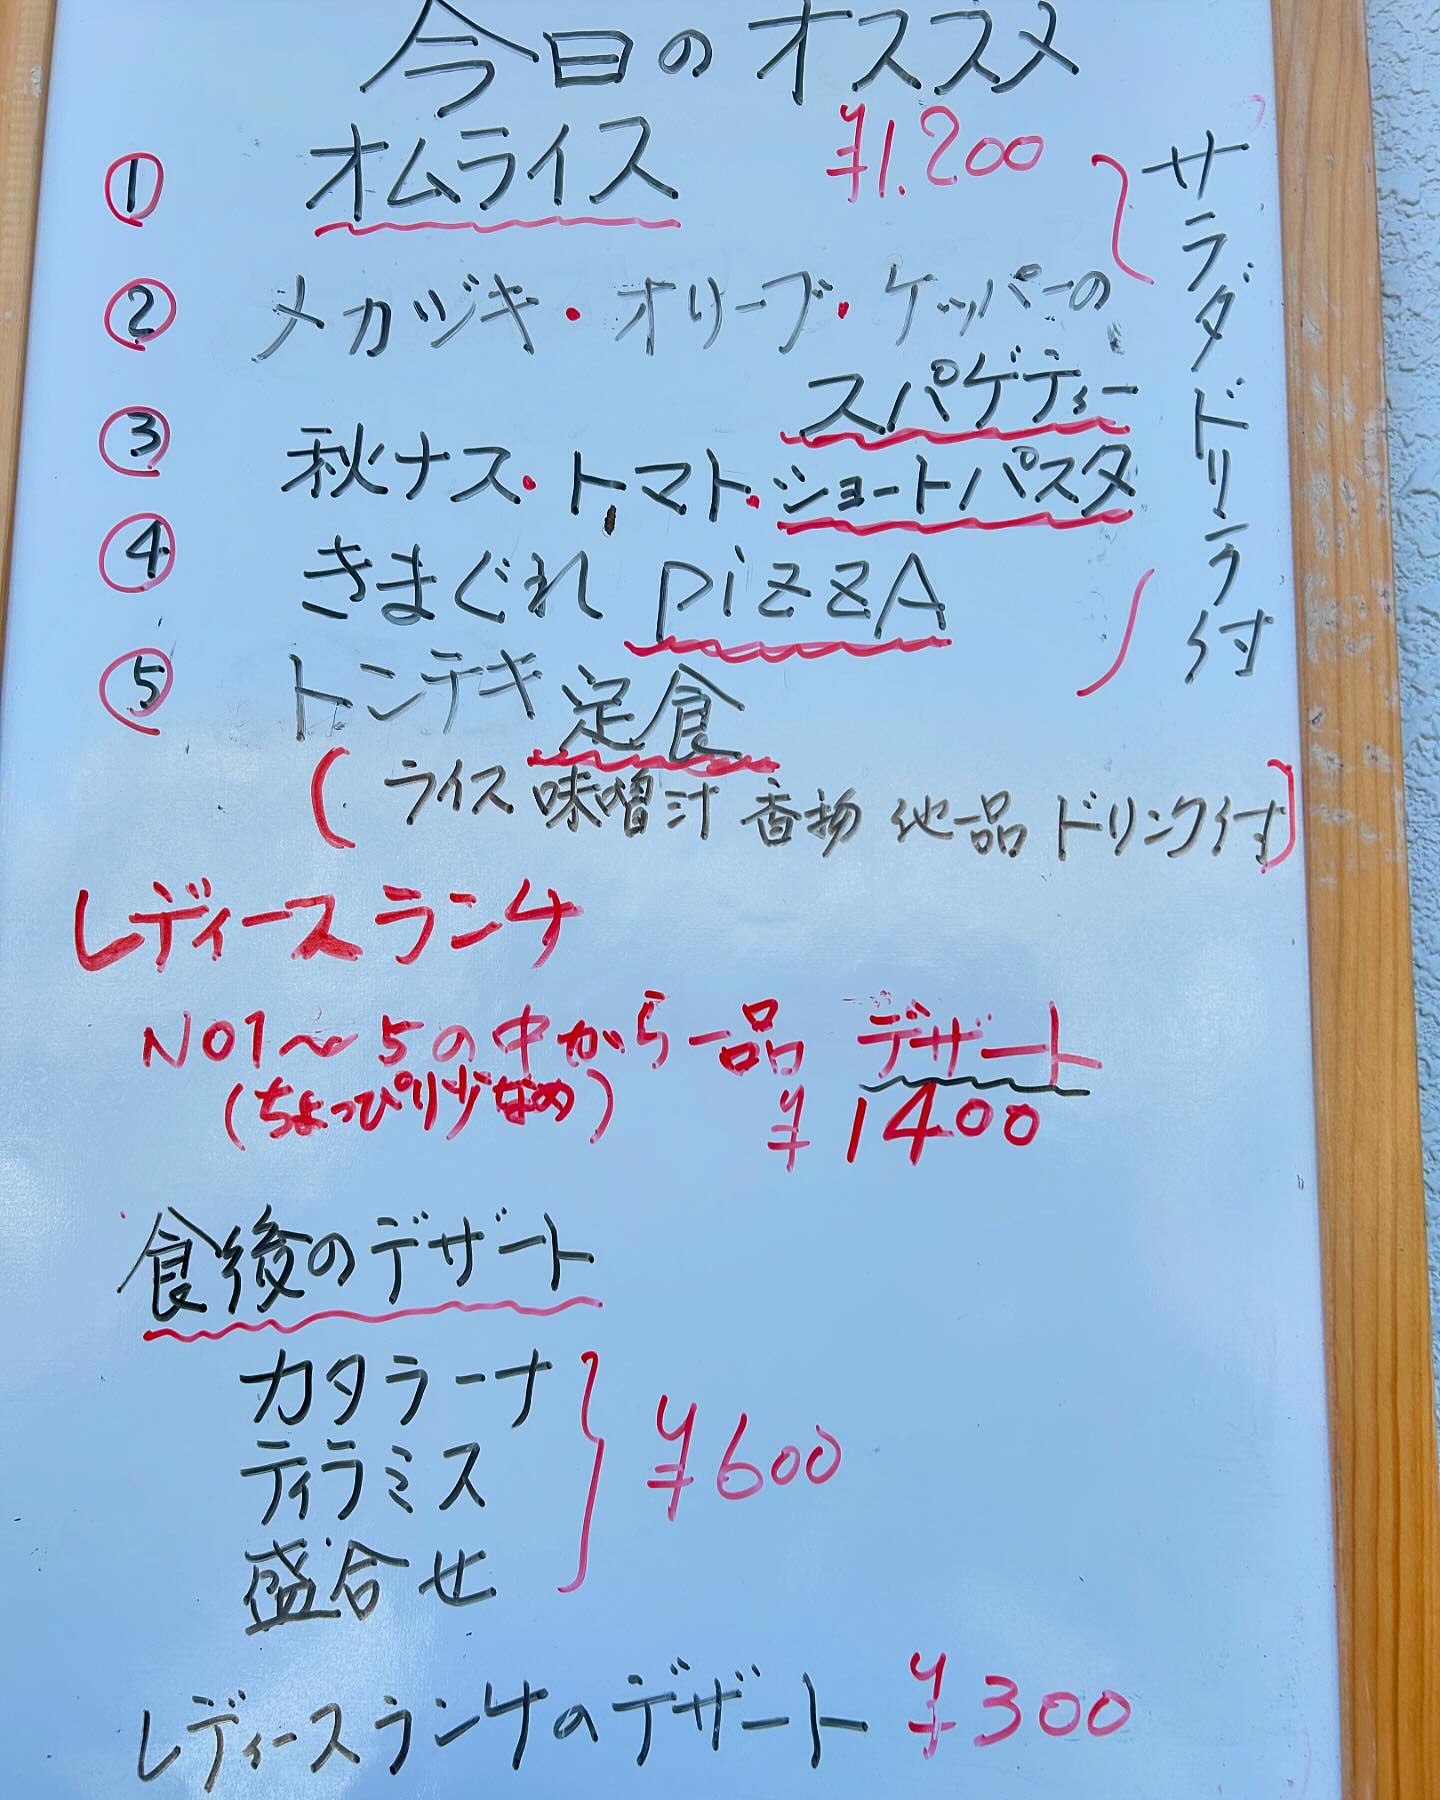 今日のオススメ
① オムライス ¥1.200
② メカジキ・オリーブ・ケッパーの
スパゲティー
③ 秋ナス・トマト・ショートパスタ
④ きまぐれ PizzA
⑤ トンテキ定食
サラダドリンク付
(ライス 味噌汁 香物 他一品 ドリンク付)
レディースランチ
NO1〜5の中から一品 デザート
(ちょっぴり少なめ) ¥1400
食後のデザート
カタラーナ
ティラミス
盛合せ
¥600
レディースランチのデザート ¥300